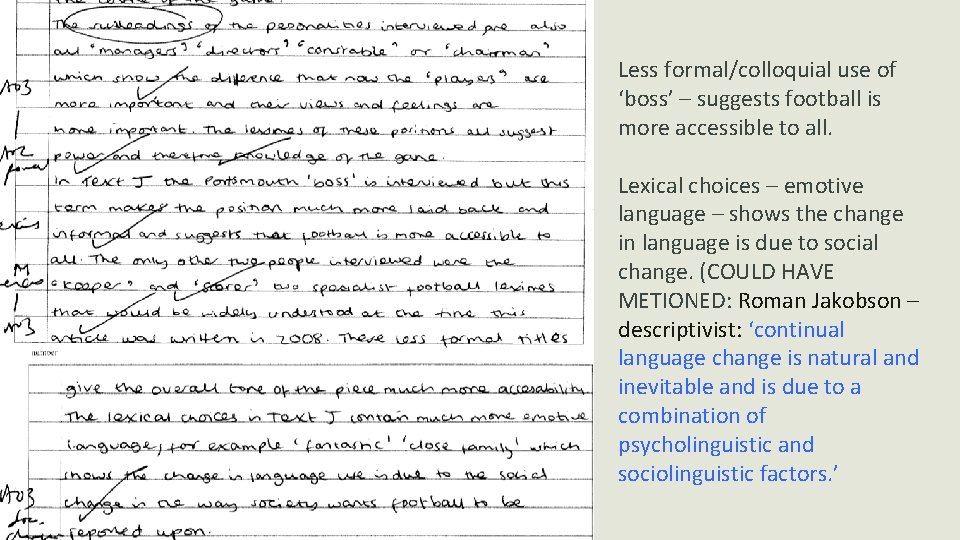 The course of the game.
The subheadings of the personalities interviewed are also
all "managers" "directors" "constable" or "chairman"
which show the difference that now the "players" are
AO3
more important and their views and feelings are
more important. The lexemes of these positions all suggest
AO2
power and therefore knowledge of the game.
In Text J the Portsmouth 'boss' is interviewed but this
term makes the position much more laid back and
informal and suggests that football is more accessible to
all. The only other two people interviewed were the
"Keeper" and 'scorer' two specialist football lexemes
that would be widely understood at the time this
AO3
article was written in 2008. These less formal titles
number
give the overall tone of the piece much more accesability.
The lexical choices in Text J contain much more emotive
language, for example 'fantastic' 'close family' which
shows the change in language use is due to the social
AO3
change in the way society wants football to be
reported upon.
Less formal/colloquial use of
‘boss’ – suggests football is
more accessible to all.
Lexical choices – emotive
language – shows the change
in language is due to social
change. (COULD HAVE
METIONED: Roman Jakobson –
descriptivist: ‘continual
language change is natural and
inevitable and is due to a
combination of
psycholinguistic and
sociolinguistic factors.’